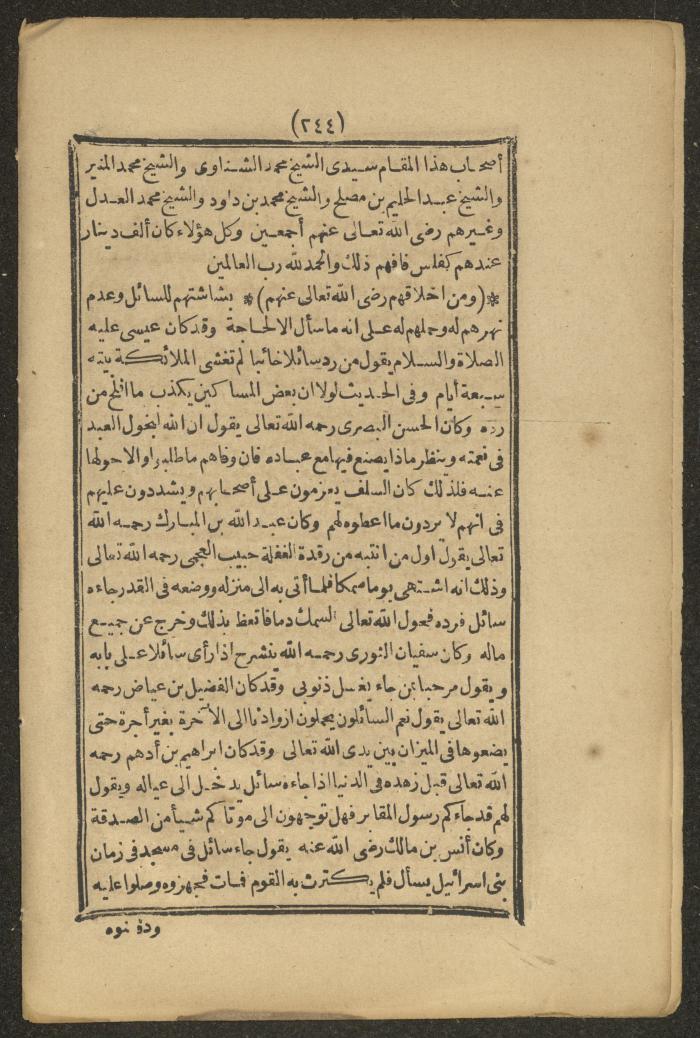 (٢٤٤)
أصحاب هذا المقام سيدى الشيخ محمد الشناوى والشيخ محمد المنير
والشيخ عبد الحليم بن مصلح والشيخ محمد بن داود والشيخ محمد العدل
وغيرهم رضى الله تعالى عنهم أجمعين وكل هؤلاء كان ألف دينار
عندهم كفلس فافهم ذلك والحمد لله رب العالمين
*(ومن اخلاقهم رضى الله تعالى عنهم)* بشاشتهم للسائل وعدم
نهرهم له وحملهم له على انه ما سأل الا لحاجة وقد كان عيسى عليه
الصلاة والسلام يقول من رد سائلا خائبا لم تغشى الملائكة بيته
سبعة أيام وفى الحديث لولا ان بعض المساكين يكذب ما افلح من
رده وكان الحسن البصرى رحمه الله تعالى يقول ان الله ليخول العبد
فى نعمته وينظر ماذا يصنع فيها مع عباده فان وفاهم ما طلبوا والا حولها
عنه فلذلك كان السلف يعزمون على أصحابهم ويشددون عليهم
فى انهم لا يردون ما اعطوه لهم وكان عبد الله بن المبارك رحمه الله
تعالى يقول اول من انتبه من رقدة الغفلة حبيب العجمى رحمه الله تعالى
وذلك انه اشتهى يوما سمكا فلما أتى به الى منزله ووضعه فى القدر جاءه
سائل فرده فحول الله تعالى السمك دما فاتعظ بذلك وخرج عن جميع
ماله وكان سفيان الثورى رحمه الله ينشرح اذا رأى سائلا على بابه
ويقول مرحبا بمن جاء يغسل ذنوبى وقد كان الفضيل بن عياض رحمه
الله تعالى يقول نعم السائلون يحملون ازوادنا الى الآخرة بغير أجرة حتى
يضعوها فى الميزان بين يدى الله تعالى وقد كان ابراهيم بن أدهم رحمه
الله تعالى قبل زهده فى الدنيا اذا جاءه سائل يدخل الى عياله ويقول
لهم قد جاءكم رسول المقابر فهل توجهون الى موتاكم شيأ من الصدقة
وكان أنس بن مالك رضى الله عنه يقول جاء سائل فى مسجد فى زمان
بنى اسرائيل يسأل فلم يكترث به القوم فمات فجهزوه وصلوا عليه
ودفنوه